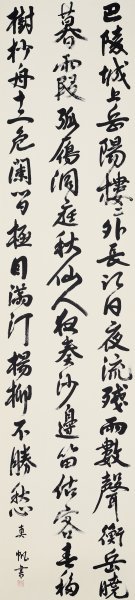 巴陵城上岳陽樓々外長江日夜流殘雨數聲衡岳曉
暮霞孤雁洞庭秋仙人夜奏沙邊笛估客春移
樹杪舟十二危闌皆極目滿汀楊柳不勝愁
真帆書